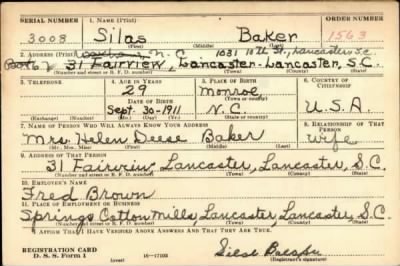 SERIAL NUMBER 1. NAME (Print) ORDER NUMBER
3008 Silas Baker 1563
(First) (Middle) (Last)
2. ADDRESS (Print) S. C. 1031 10th St., Lancaster S.C.
31 Fairview, Lancaster-Lancaster, S.C.
(Number and street or R. F. D. number) (Town) (County) (State)
3. TELEPHONE 4. AGE IN YEARS 5. PLACE OF BIRTH 6. COUNTRY OF CITIZENSHIP
29 Monroe
DATE OF BIRTH (Town or county)
Sept. 30-1911 N.C. U.S.A.
(Exchange) (Number) (Mo.) (Day) (Yr.) (State or country)
7. NAME OF PERSON WHO WILL ALWAYS KNOW YOUR ADDRESS 8. RELATIONSHIP OF THAT PERSON
Mrs. Helen Deese Baker wife
(Mr., Mrs., Miss) (First) (Middle) (Last)
9. ADDRESS OF THAT PERSON
31 Fairview Lancaster, Lancaster, S.C.
(Number and street or R. F. D. number) (Town) (County) (State)
10. EMPLOYER'S NAME
Fred Brown
11. PLACE OF EMPLOYMENT OR BUSINESS
Springs Cotton Mills Lancaster Lancaster, S.C.
(Number and street or R. F. D. number) (Town) (County) (State)
I AFFIRM THAT I HAVE VERIFIED ABOVE ANSWERS AND THAT THEY ARE TRUE.
REGISTRATION CARD
D. S. S. Form 1 (over) 16—17105 (Registrant's signature)